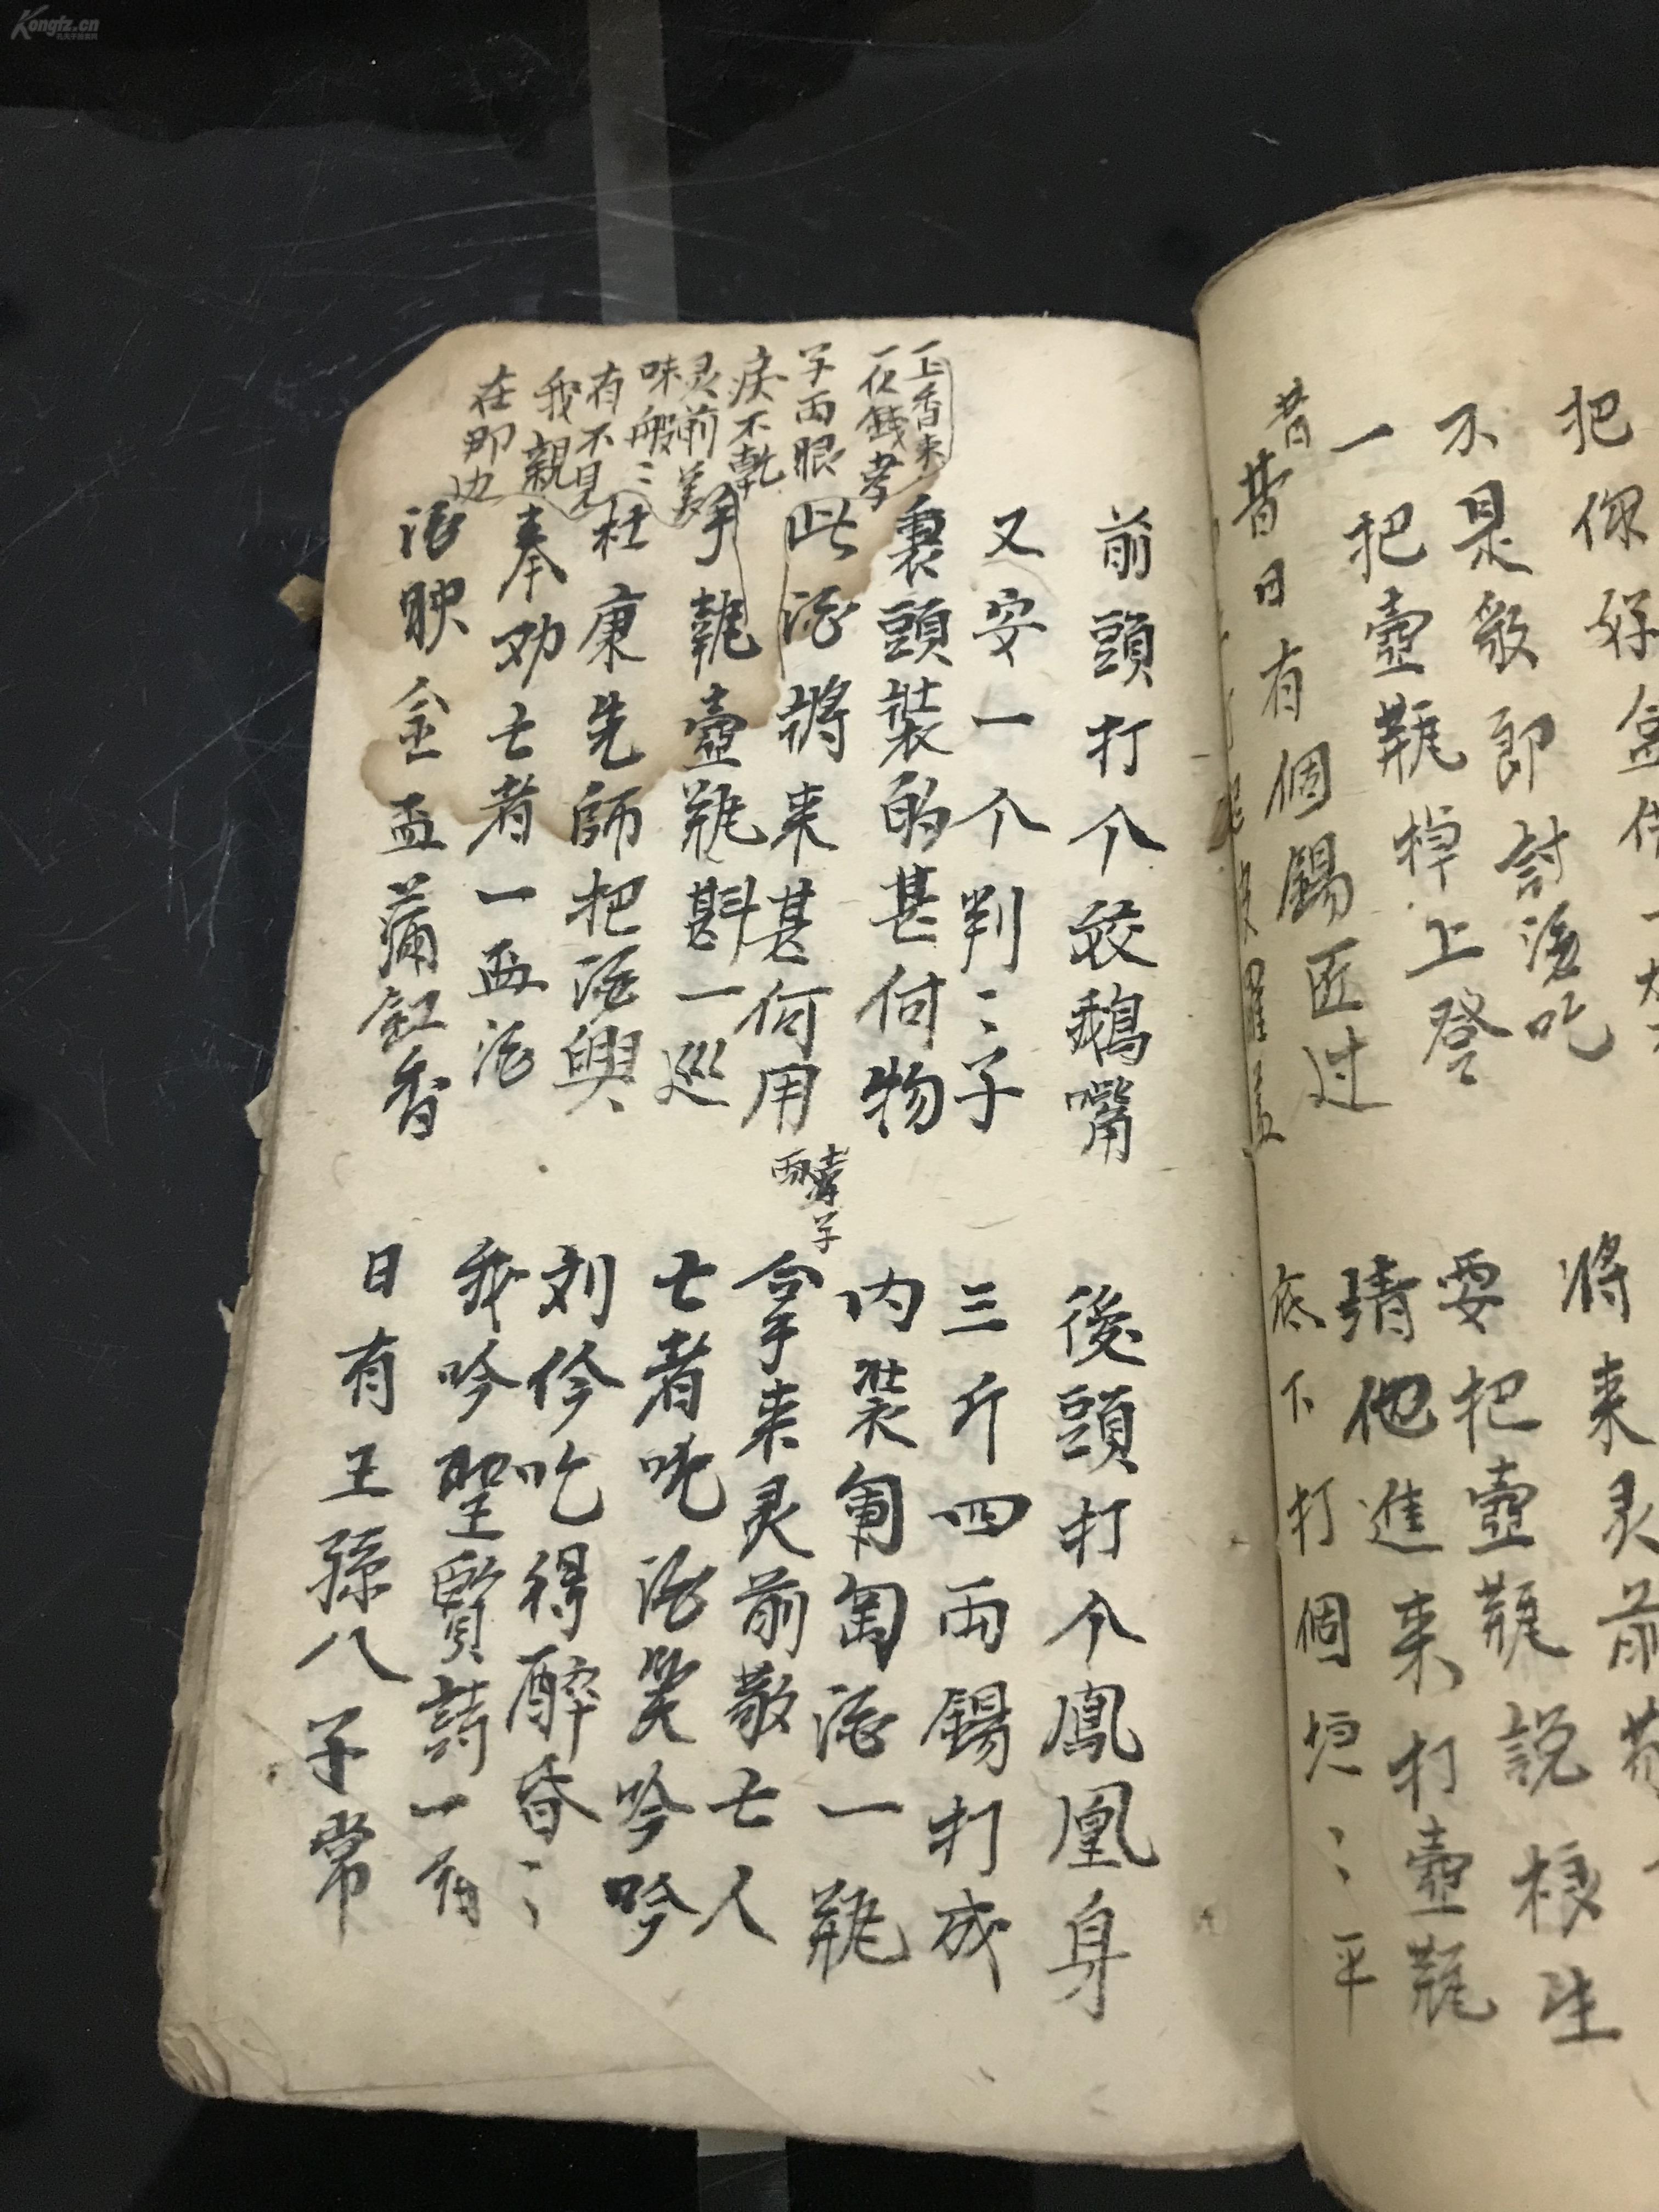 把你好
將来灵前
不是敬郎討酒吃
要把壺瓶説根生
一把壺瓶棹上登
請他進来打壺瓶
昔
昔日有個錫匠过
底下打個垣〻平
前頭打个鵝嘴
後頭打个鳳凰身
又安一个判〻子
三斤四两錫打成
裏頭裝的甚何物
内裝匍匐酒一瓶
此酒將来甚何用
孝子
拿来灵前敬亡人
手執壺瓶斟一巡
亡者吃酒笑吟吟
杜康先師把酒興
刘伶吃得醉昏〻
奉劝亡者一盃酒
我吟聖賢詩一首
酒映金盃蒲缸香
日有王孫八子常
一上香来
一化錢孝
子両眼
淚不乾
灵前美
味般〻
有不見
我親
在那边
Kongfz.cn